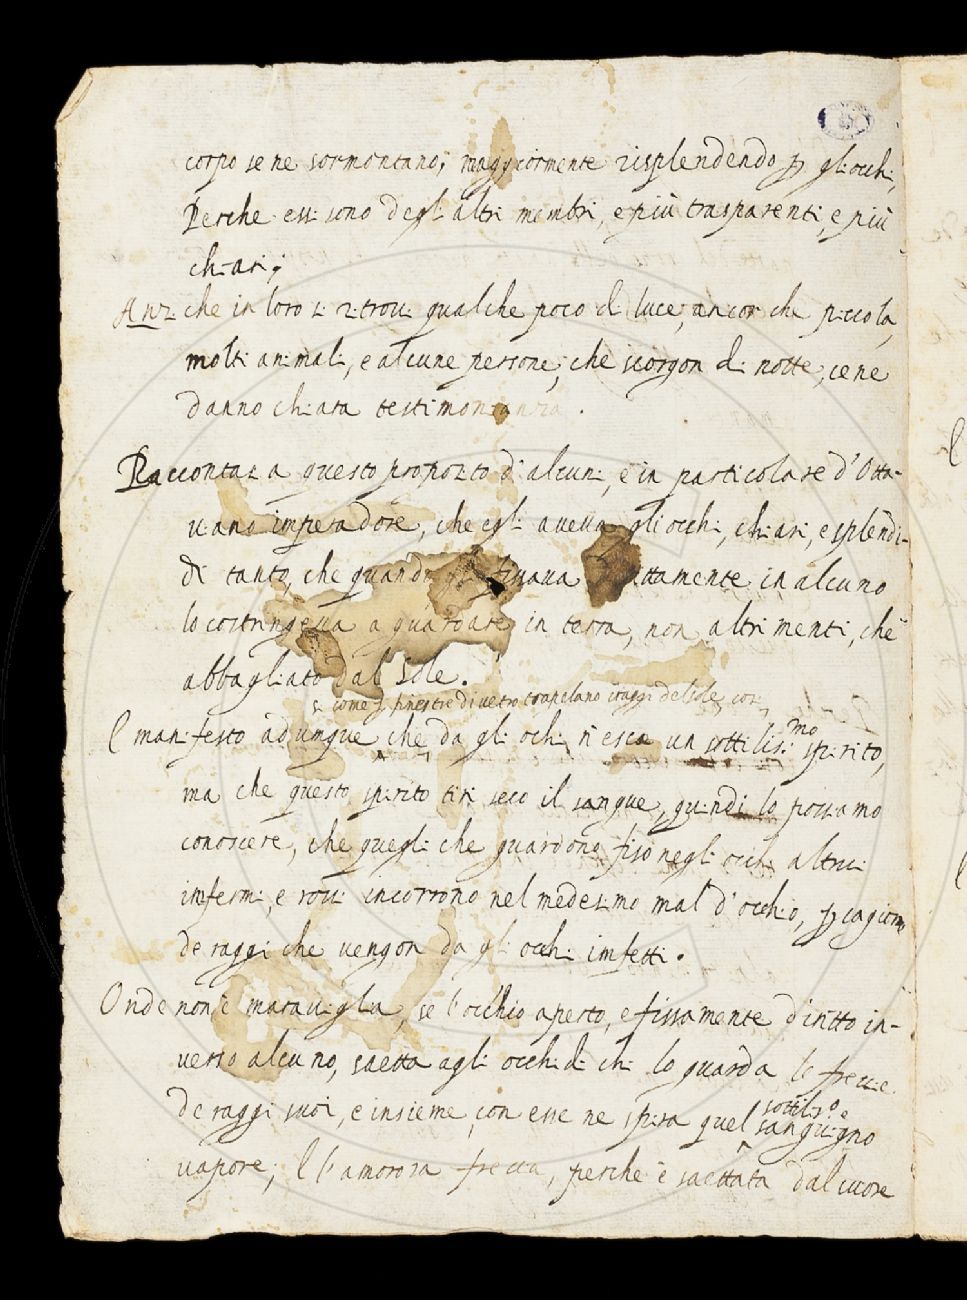 corpo se ne sormontano; maggiormente risplendendo p gli occhi,
Perche essi sono degl'altri membri, e più trasparenti, e più
chiari;
Anzi che in loro si ritrovi qualche poco di luce, ancor che piccola,
molti animali, e alcune persone, che scorgon di notte, ce ne
danno chiara testimonianza.
Raccontasi a questo proposito d'alcuni, e in particolare d'Otta-
viano imperadore, che egli aveva gli occhi, chiari, e splendi-
di tanto, che quando fissava attamente in alcuno
lo costringeva a guardare in terra, non altrimenti, che
abbagliato dal Sole.
si come p finestre di vetro trapelano i raggi del sole, così,
E manifesto adunque che, da gli ochi n'esca un sottilissimo spirito,
ma che questo spirito tiri seco il sangue, quindi lo possiamo
conoscere, che quegli che guardono fiso negli occhi altrui
infermi, e rossi incorrono nel medesimo mal d'occhio, p cagione
de raggi che vengon da gli occhi infetti.
Onde non è maraviglia, se l'occhio aperto, e fissamente diritto in-
verso alcuno, saetta agli occhi di chi lo guarda le frecce
de raggi suoi, e insieme con esse ne spira quel
sanguigno
vapore; E l'amorosa freccia, perche è saettata dal cuore